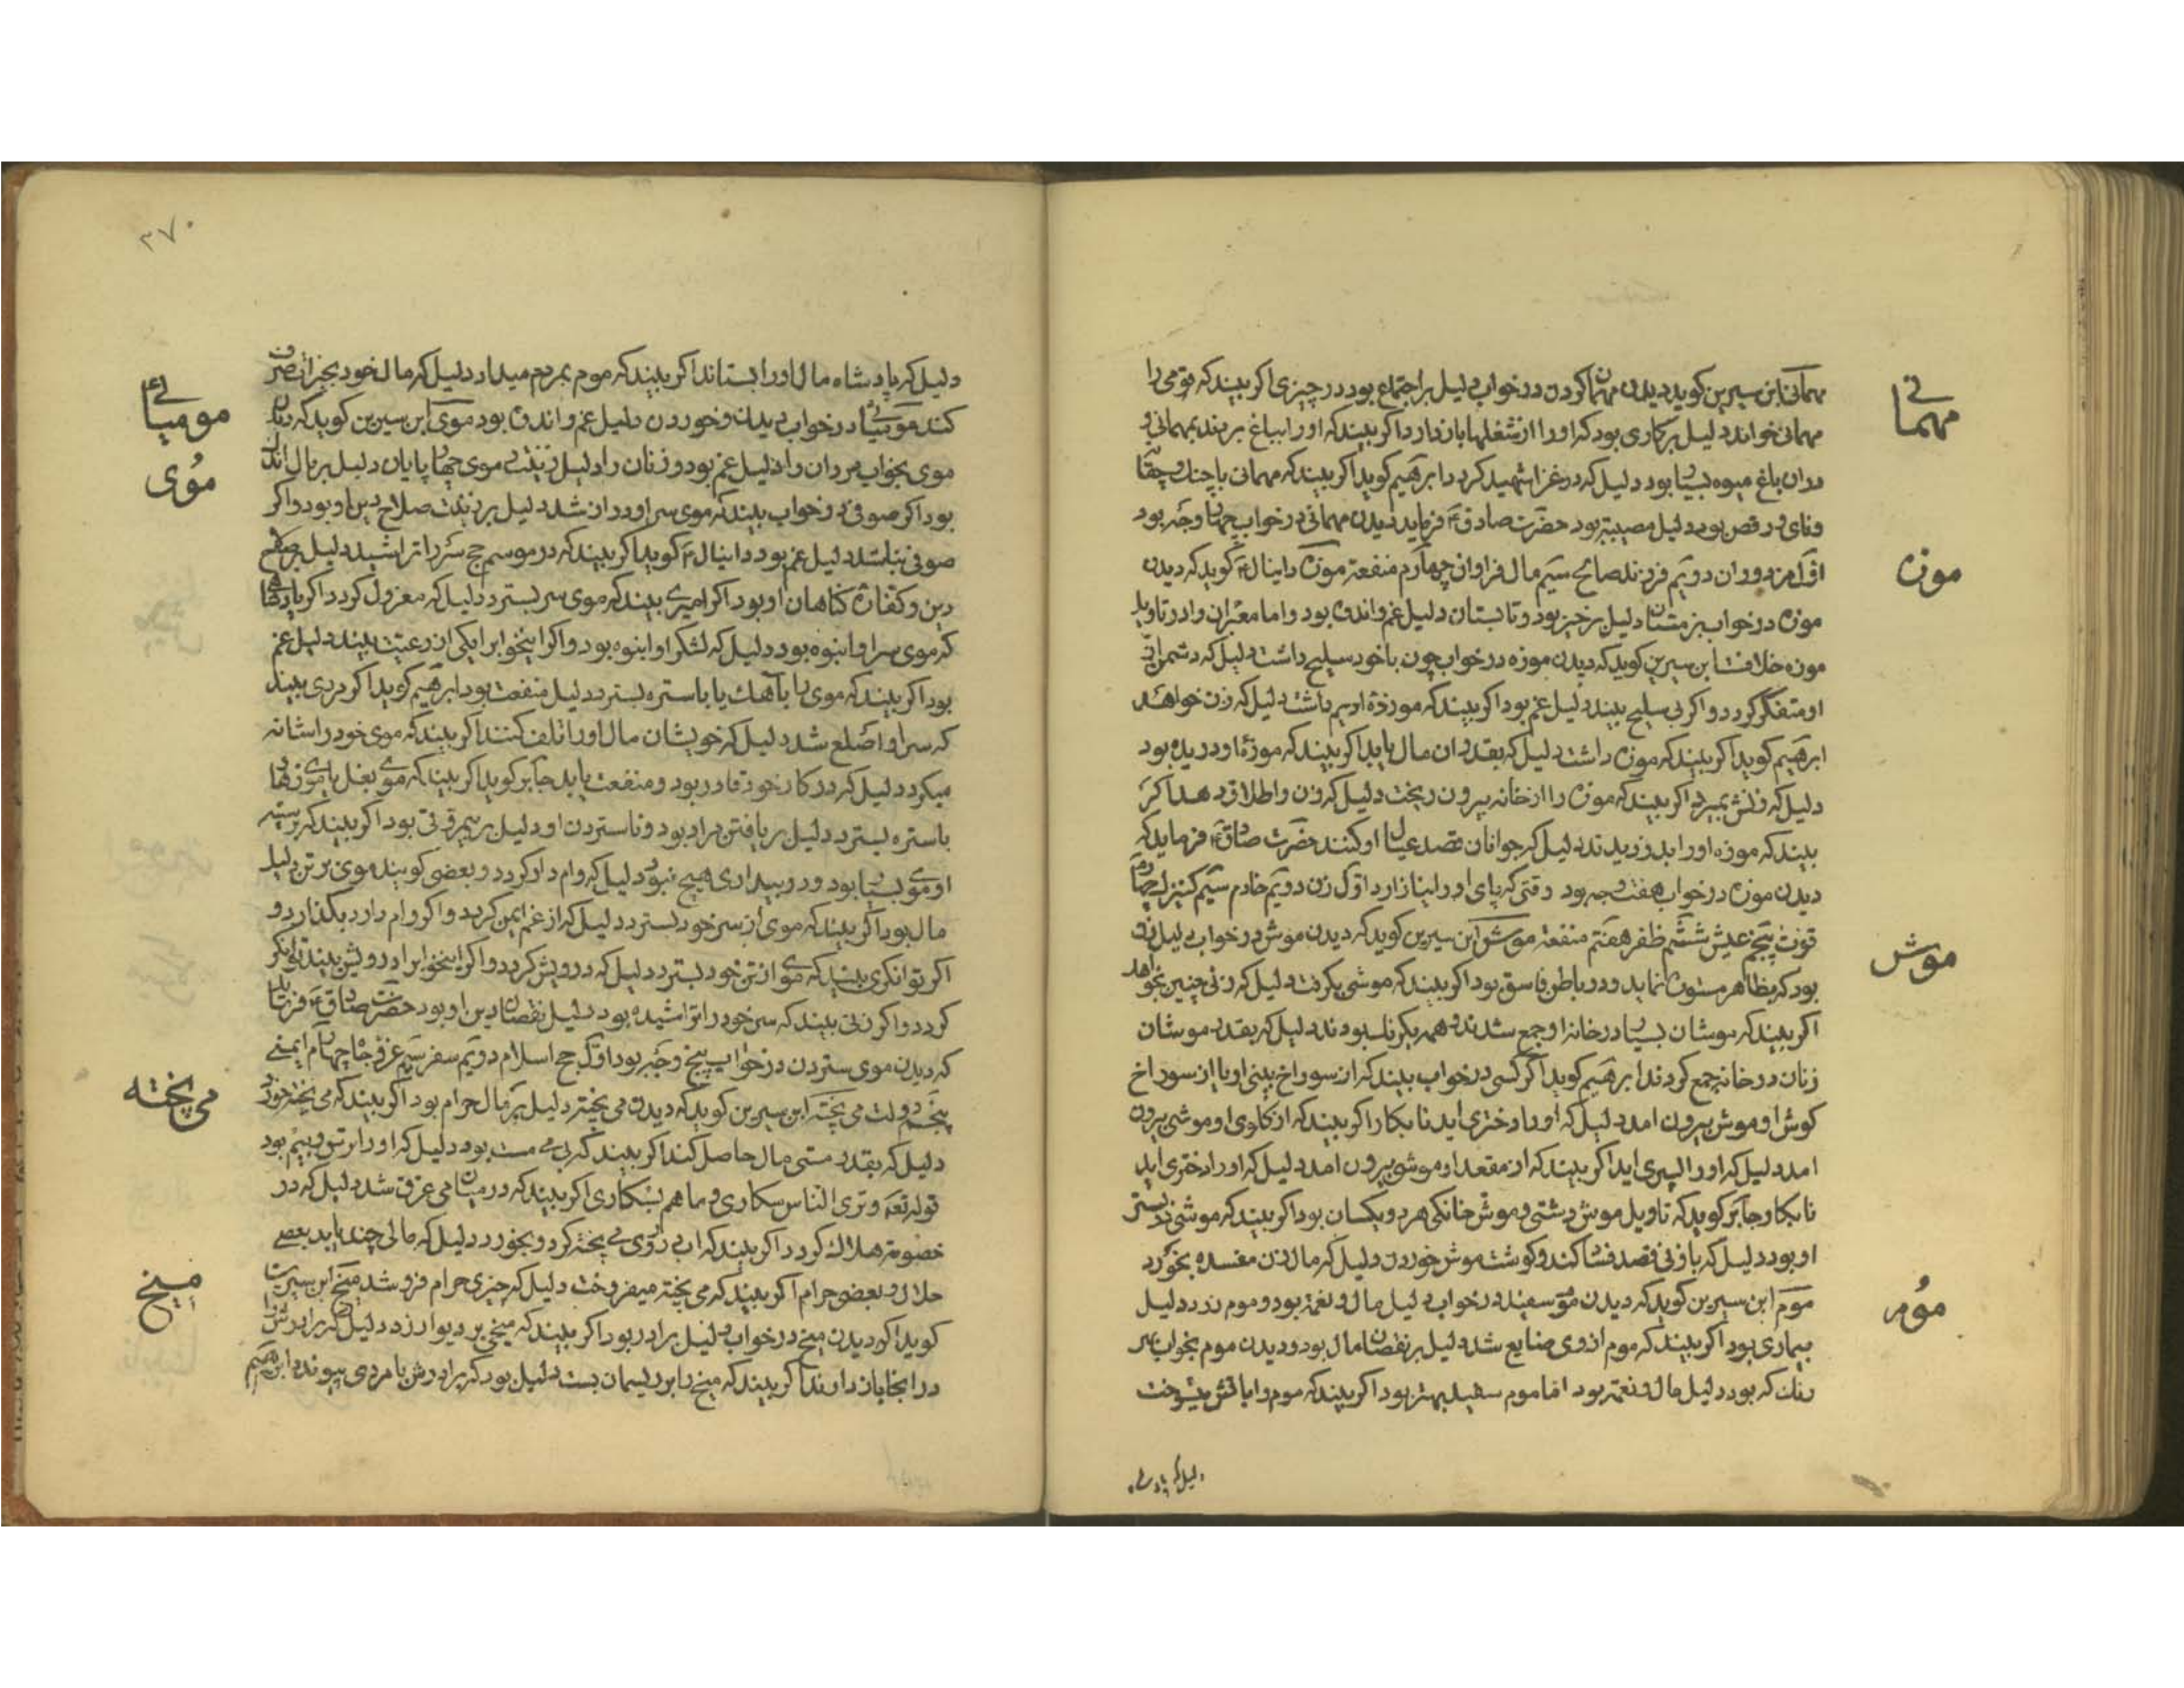 مهمانی
مهمانی ابن سیرین کوید دیدن مهمان کردن در خواب دلیل بر اجتماع بود در چیزی اکر بیند که قومی را
مهمانی خواند دلیل بر کاری بود که او را از شغلها باز دارد اکر بیند که او را بباغ بردند بمهمانی و
دران باغ میوه بسیار بود دلیل که در غزا شهید کردد ابرهیم کوید اکر بیند که مهمانی با چنك و چغانه
ونای و رقص بود دلیل مصیبت بود حضرت صادق فرماید دیدن مهمانی در خواب چهار وجه بود
موزه
اول مزدوران دویم فرزند صالح سیم مال فراوان چهارم منفعة موزه دانیال کوید که دیدن
موزه در خواب بزمستان دلیل بر خیر بود و تابستان دلیل غم و اندوه بود و اما معبران را در تاویل
موزه خلافست ابن سیرین کوید که دیدن موزه در خواب چون با خود سلیح داشت دلیل که دشمن از
او متفکر کردد و اکر بی سلیح بیند دلیل غم بود اکر بیند که موزهٔ ادیم داشت دلیل که زن خواهد
ابرهیم کوید اکر بیند که موزه داشت دلیل که بقدر ان مال یابد اکر بیند که موزهٔ او دریده بود
دلیل که زنش بمیرد اکر بیند که موزه را از خانه بیرون ریخت دلیل که زن را طلاق دهد اکر
بیند که موزه اورا بدزدیدند دلیل که جوانان قصد عیال او کنند حضرت صادق فرماید که
دیدن موزه در خواب هفت وجه بود وقتی که پای او را نیازارد اول زن دویم خادم سیم کنیزك چهارم
موش
قوت پنجم عیش ششم ظفر هفتم منفعة موش ابن سیرین کوید که دیدن موش در خواب دلیل زنی
بود که بظاهر مستوره نماید و در باطن فاسق بود اکر بیند که موشی بکرفت دلیل که زنی چنین بخواهد
اکر بیند که موشان بسیار در خانه او جمع شدند و همه یکرنك بودند دلیل که بقدر موشان
زنان در خانه جمع کردند ابرهیم کوید اکر کسی در خواب بیند که از سوراخ بینی او یا از سوراخ
کوش او موش بیرون امد دلیل که او را دختری اید نابکار اکر بیند که از کلوی او موشی بیرون
امد دلیل که او را پسری اید اکر بیند که از مقعد او موشی بیرون امد دلیل که او را دختری اید
نابکار و جابر کوید که تاویل موش دشتی و موش خانکی هر دو یکسان بود اکر بیند که موشی در بستر
او بود دلیل که با وی زنی قصد فساد کند و کوشت موش خوردن دلیل که مال زن مفسده بخورد
موم
موم ابن سیرین کوید که دیدن موم سفید در خواب دلیل مال و نعمة بود و موم زرد دلیل
بیماری بود اکر بیند که موم از وی ضایع شد دلیل بر نقصان مال بود و دیدن موم بخواب بهر
رنك که بود دلیل مال و نعمة بود اما موم سفید بهتر بود اکر بیند که موم را باتش میسوخت
دلیل که پادشاه
۳۷۰
دلیل که پادشاه مال او را بستاند اکر بیند که موم بمردم میداد دلیل که مال خود بخیرات صرف
مومیائی
کند مومیائی در خواب دیدن و خوردن دلیل غم و اندوه بود موی ابن سیرین کوید که دیدن
موی
موی بخواب مردان را دلیل غم بود و زنان را دلیل زینت و موی چهار پایان دلیل بر مال اندك
بود اکر صوفی در خواب بیند که موی سر او دراز شد دلیل بر زیادت صلاح دین او بود و اکر
صوفی نباشد دلیل غم بود دانیال کوید اکر بیند که در موسم حج سر را تراشید دلیل بر صلاح
دین و کفارة کناهان او بود اکر امیری بیند که موی سر بسترد دلیل که معزول کردد اکر پادشاه
که موی سر او انبوه بود دلیل که لشکر او انبوه بود و اکر اینخواب را یکی از رعیت بیند دلیل غم
بود اکر بیند که موی را باهك یا باستره بسترد دلیل منفعت بود ابرهیم کوید اکر مردی بیند
که سر او اصلع شد دلیل که خویشان مال او را تلف کنند اکر بیند که موی خود را شانه
میکرد دلیل که در کار خود قادر بود و منفعت یابد جابر کوید اکر بیند که موی بغل یا موی زهار
باستره بسترد دلیل بر یافتن مراد بود و ناستردن او دلیل بر بیم قوتی بود اکر بیند که بر سینه
او موی بسیار بود و در بیداری هیچ نبود دلیل که وام دار کردد و بعضی کویند موی بر تن دلیل
مال بود اکر بیند که موی از سر خود بسترد دلیل که از غم ایمن کردد و اکر وام دارد بکذارد و
اکر توانکری بیند که موی از تن خود بسترد دلیل که درویش کردد و اکر اینخواب را درویش بیند توانکر
کردد و اکر زنی بیند که سر خود را تراشیده بود دلیل نقصان دین او بود حضرت صادق فرماید
که دیدن موی ستردن در خواب پنج وجه بود اول حج اسلام دویم سفر سیم عز و جاه چهارم ایمنی
می پخته
پنجم دولت می پخته ابن سیرین کوید که دیدن می پخته دلیل بر مال حرام بود اکر بیند که می پخته خورد
دلیل که بقدر مستی مال حاصل کند اکر بیند که بی می مست بود دلیل که او را ترس و بیم بود
قوله تعه وتری الناس سکاری وما هم بسکاری اکر بیند که در میان می غرق شد دلیل که در
خصومة هلاك کردد اکر بیند که اب در وی می پخته کرد و بخورد دلیل که مالی چند یابد بعضی
میخ
حلال و بعضی حرام اکر بیند که می پخته میفروخت دلیل که چیزی حرام فروشد میخ ابن سیرین
کوید که دیدن میخ در خواب دلیل برادر بود اکر بیند که میخی بر دیوار زد دلیل که برادرش را
در انجا باز دارند اکر بیند که میخ را بر ریسمان بست دلیل بود که برادرش با مردی پیوندد ابرهیم